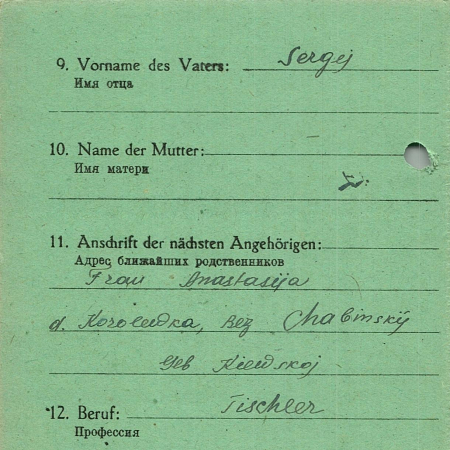 9. Vorname des Vaters: Sergej
Имя отца
10. Name der Mutter:
Имя матери
11. Anschrift der nächsten Angehörigen:
Адрес ближайших родственников
Frau Anastasija
d. Korolewka, Bez Chabinskÿ
Geb Kiewskoj
12. Beruf: Tischler
Профессия